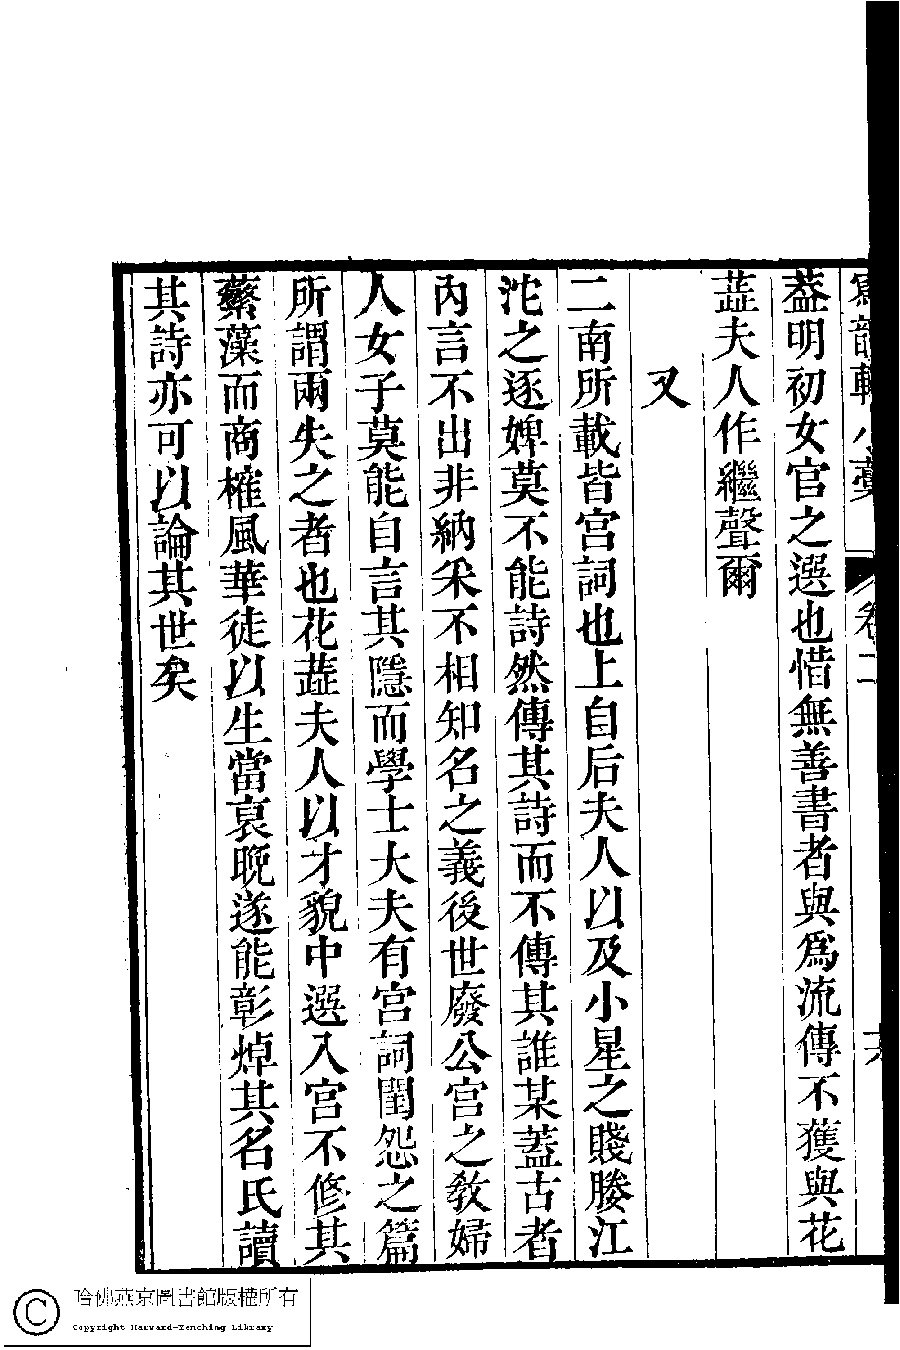 寫韻軒小藁 卷二 六
葢明初女官之選也惜無善書者與爲流傳不獲與花
蕋夫人作繼聲爾
又
二南所載皆宮詞也上自后夫人以及小星之賤媵江
沱之逐婢莫不能詩然傳其詩而不傳其誰某葢古者
內言不出非納采不相知名之義後世廢公宮之敎婦
人女子莫能自言其隱而學士大夫有宮詞閨怨之篇
所謂兩失之者也花蕋夫人以才貌中選入宮不修其
蘩藻而商榷風華徒以生當衰晚遂能彰焯其名氏讀
其詩亦可以論其世矣
哈佛燕京圖書館版權所有
Copyright Harvard-Yenching Library